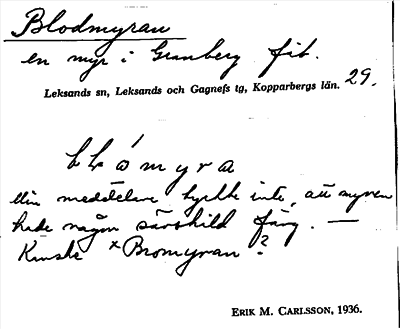 Blodmyran
en myr i Granberg fäb. 29.
Leksands sn, Leksands och Gagnefs tg, Kopparbergs län.
blómyra
Min meddelare tyckte inte, att myren
hade någon särskild färg. —
Kanske ˣBromyran?
ERIK M. CARLSSON, 1936.